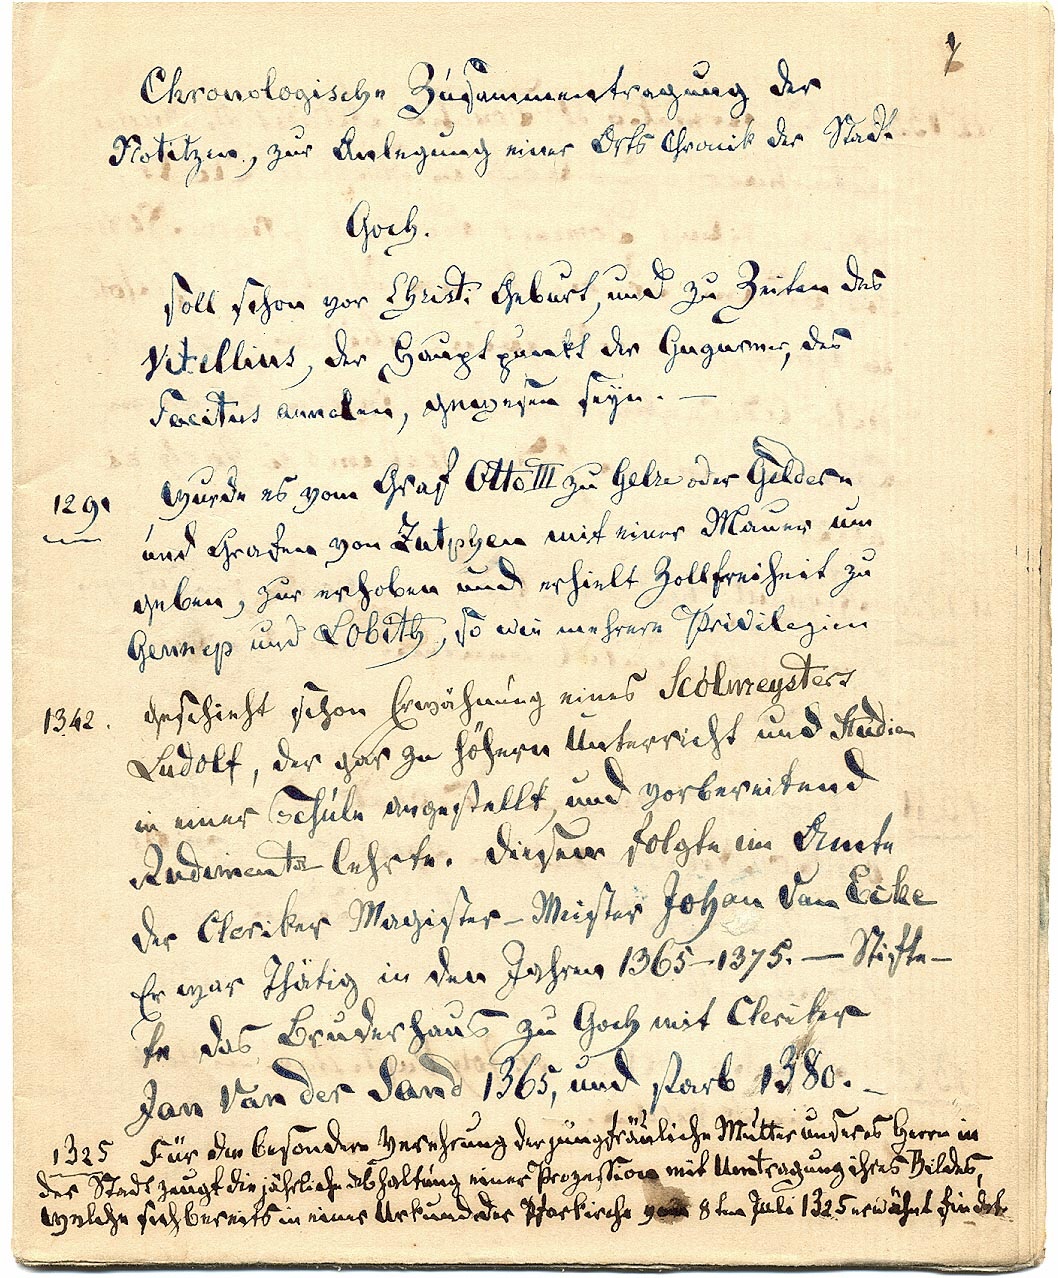 1
Chronologische Zusammentragung der
Notitzen, zur Anlegung einer Orts Chronik der Stadt
Goch.
soll schon vor Christi Geburt, und zu Zeiten des
Vitellius, der Hauptpunkt der Gugerner, des
Tacitus annalen, gewesen seyn. —
1291 Wurde es vom Graf Otto III zu Gelre oder Geldern
und Grafen von Zutphen mit einer Mauer um
geben, zur erhoben und erhielt Zollfreiheit zu
Gennep und Lobith, so wie mehrere Privilegien
1342. geschieht schon Erwähnung eines Scolmeysters
Ludolf, der gar zu höhern Unterricht und Studien
in einer Schule angestellt, und vorbereitend
Rudimenta lehrte. Diesem folgte im Amte
der Cleriker Magister – Meister Johan van Ecke
Er war Thätig in den Jahren 1365–1375. — Stifte–
te das Bruderhaus zu Goch mit Cleriker
Jan van der Sand 1365, und starb 1380. –
1325 Für die besondere Verehrung der jungfräuliche Mutter unseres Herrn in
der Stadt zeugt die jährliche abhaltung einer Prozession mit Umtragung ihres Bildes,
welche sich bereits in einer Urkunde der Pfarkirche vom 8ten Juli 1325 erwähnt findet